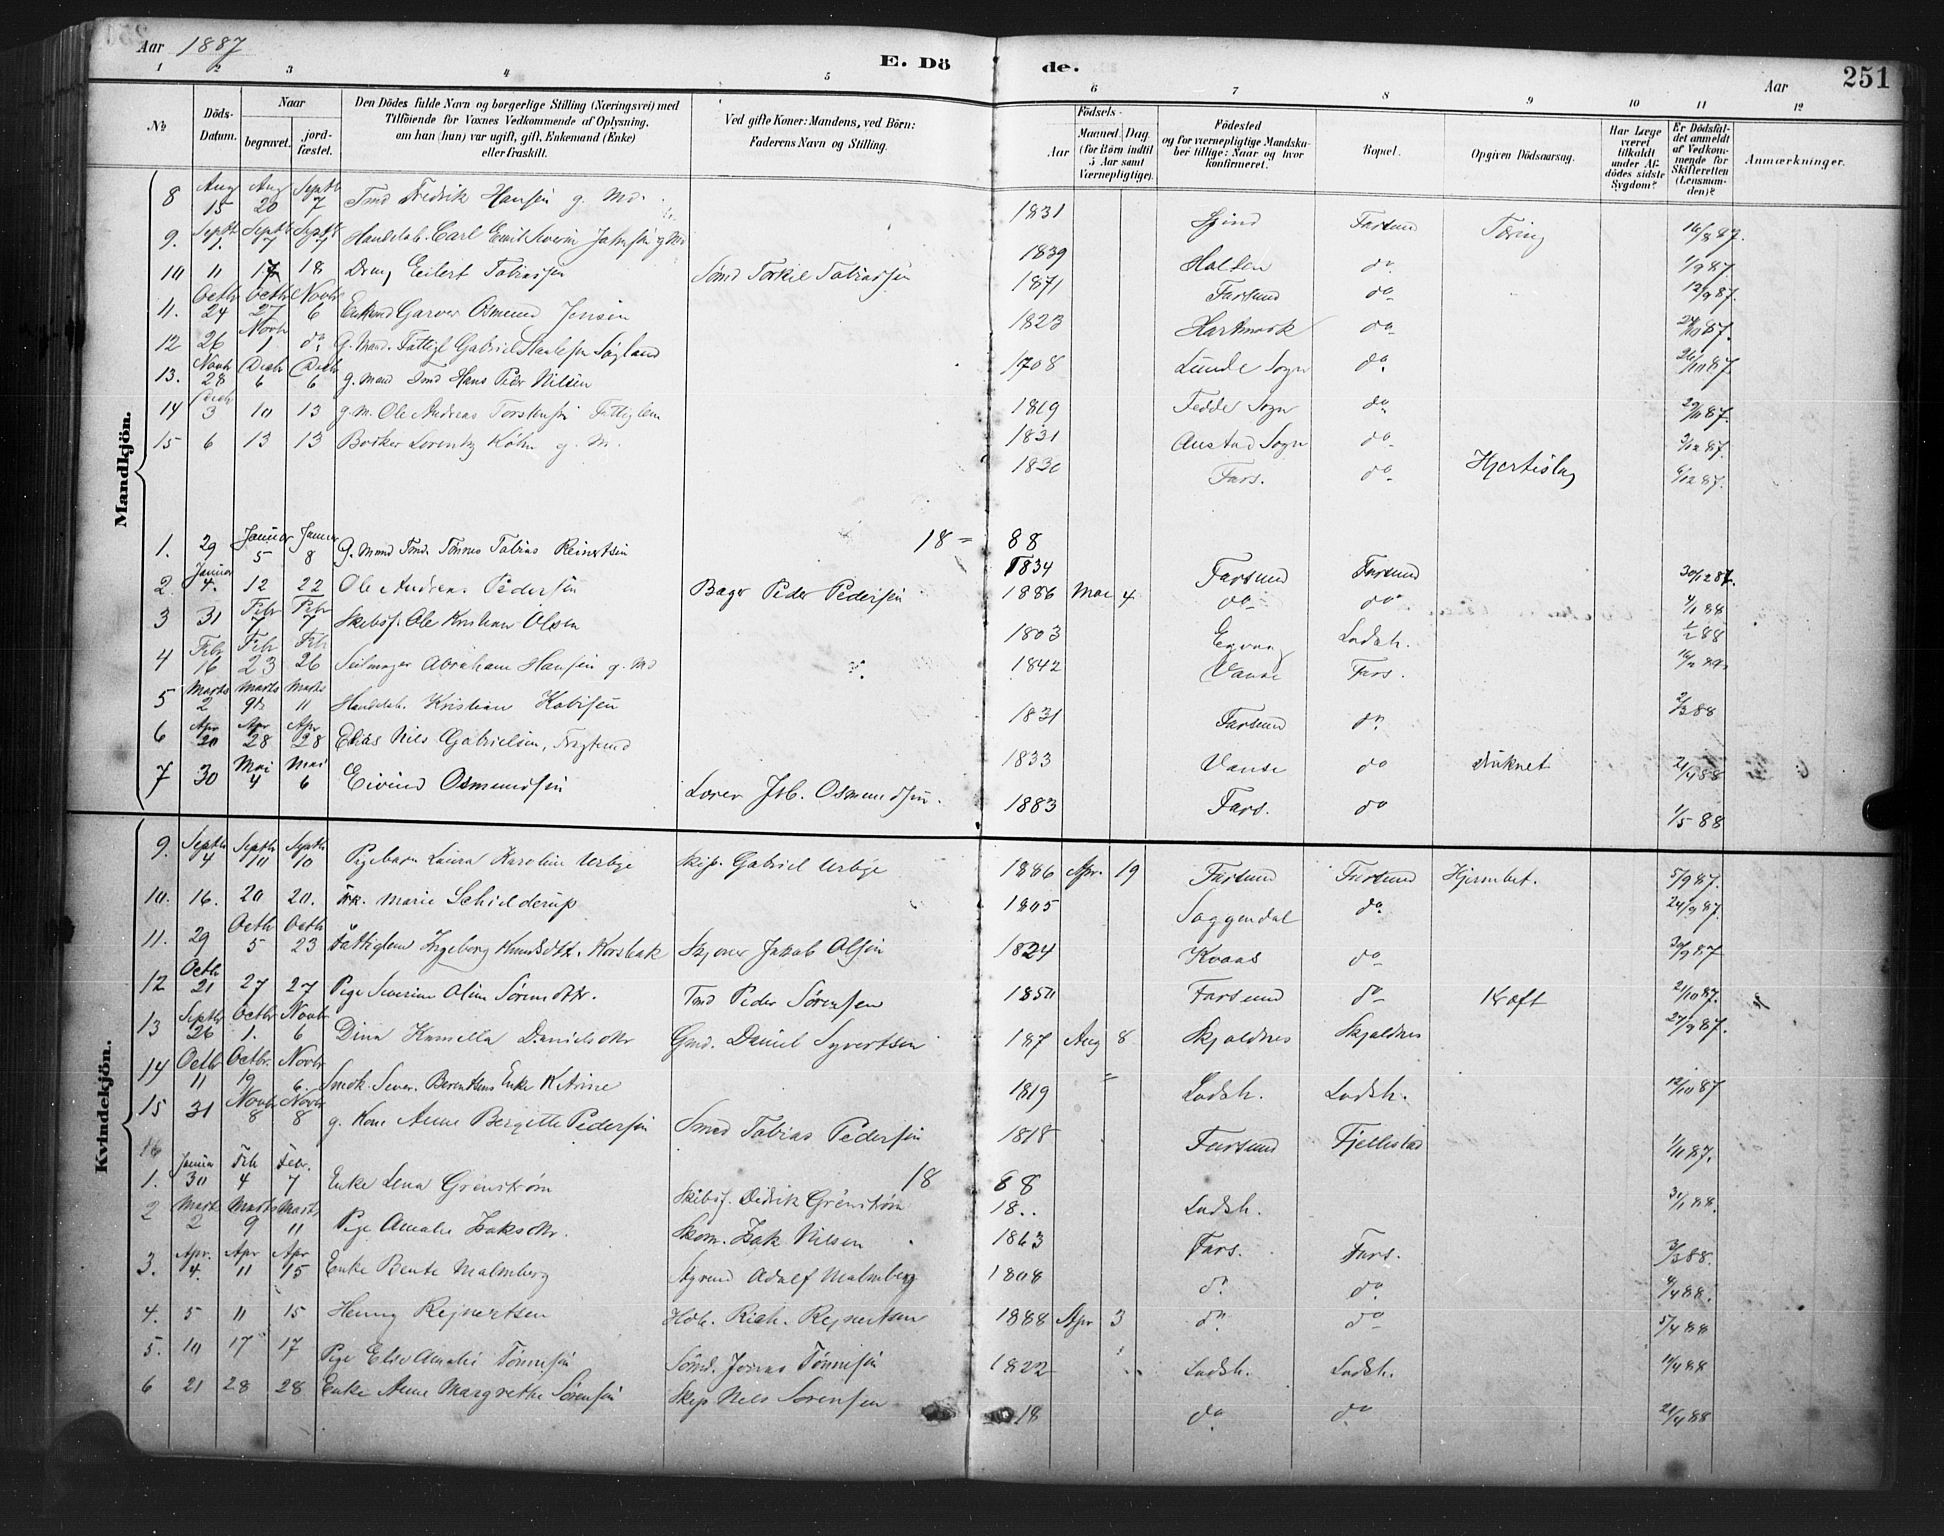 Aar 1887
E. Dö de.
Aar
251
1 2 3 4 5 6 7 8 9 10 11 12
No
Döds-Datum.
Naar
begravet.
jord-fæstet.
Den Dödes fulde Navn og borgerlige Stilling (Næringsvei) med
Tilföiende for Voxnes Vedkommende af Oplysning,
om han (hun) var ugift, gift, Enkemand (Enke)
eller fraskilt.
Ved gifte Koner: Mandens, ved Börn:
Faderens Navn og Stilling.
Födsels-
Aar
Maaned. Dag.
(for Börn indtil 5 Aar samt Værnepligtige).
Födested
og for værnepligtige Mandsku-
ber tillige: Naar og hvor
konfirmeret.
Bopæl.
Opgiven Dödsaarsag.
Har Læge været tilkaldt under Af-dödes sidste Sygdom?
Er Dödsfal-det anmeldt af Vedkom-mende for Skifteretten (Lensman-den)?
Anmærkninger.
Mandkjön.
8 Aug 15 Aug 20 Septb 7 Tmd Fredrik Hansen g. Md. 1831 Farsund Tæring 16/8 87.
9. Septb 1. Septb 7 Septb 7 Handelsb. Carl Emil Severin Jahnsen g Md 1839 Halsen do 1/9 87.
10 11 17 18 Dreng Eilert Tobiassen Sømd Torkil Tobiassen 1871 Farsund do 12/9 87.
11. Octb 24 Octb 27 Novb 6 Enkemd Garver Osmund Jensen 1823 Hartmark do 24/10 87.
12 26 Novb 1 do G. Mand. Fattigl. Gabriel Søgland Lunde Sogn do 26/10 87.
13. Novb 28 Decb 6 Decb 6 g. Mand Tmd Hans Peder Nilsen 1819 Fedde Sogn do 29/11 87.
14 Decb 3 10 13 g. M. Ole Andreas Torstensen Fattiglem 1831 Austad Sogn do 3/12 87.
15 6 13 13 Bødker Lorentz Køhn g. M. 1830 Fars. do Hjerteslag 6/12 87.
18 = 88
1. 29 Januar 5 Januar 8 G. Mand Tmd. Tønnes Tobias Reinertsen 1834 Farsund Farsund 30/12 87.
2. Januar 4. 12 22 Ole Andreas Pedersen Bager Peder Pedersen 1886 Mai 4 do do 4/1 88
3 31 Febr 7 Febr 7 Skibsf. Ole Kristian Olsen 1803 Egvaag Ladsh. 1/2 88
4 Febr 16 Febr 23 Febr 26 Seilmager Abraham Hansen g. Md 1842 Vanse Fars.
5 Marts 2 Marts 9de Marts 11 Handelsb. Kristian Kobisen 1831 Farsund do 2/3 88
6 Apr 20 Apr 28 Apr 28 Elias Nils Gabrielsen, 1833 Vanse do druknet 21/4 88
7 30 Mai 4 Mai 6 Eivind Osmundsen Osmundsen. 1883 Fars. do 1/5 88
Kvindekjön.
9. Septb 4 Septb 10 Septb 10 Pigebarn Laura Karoline Urbye Skip. Gabriel Urbye 1886 Apr. 19 Farsund Farsund Hjernebet. 5/9 87.
10. 16. 20 20. Frk. Marie Schielderup 1805 Soggendal do
11. 29 Octb 5 Octb 23 Fattiglem Ingeborg Knudsdtr. Korsbak Jakob Olsen 1824 Kvaas do 30/9 87
12 Octb 21 27 27 Pige Severine Oline Sørensdtr. Tmd Peder Sørensen 1850 Farsund do Kræft 21/10 87.
13 Septb 26 Octbr 1. Novb 6 Dina Kamilla Danielsdtr Gmd. Daniel Syvertsen 187 Aug 8 Skjoldnes Skjoldnes 27/9 87.
14 Octbr 11 Octbr. 19 Novb 6. Enke Katrine 1819 Ladsh. Ladsh. 12/10 87
15 31 Novb 8 Novb 8 g. Kone Anne Bergitte Pedersen Smed Tobias Pedersen 1818 Farsund Fjellestad 1/11 87.
16
18 88
1. Januar 30 Feb 4 Febr. 7 Enke Lena Grønstrøm Skibsf. Didrik Grønstrøm 18.. Ladsh. 31/1 88.
2 Marts 2 Marts 9 Marts 11 Pige Amalie Isaksdtr. Skom. Isak Nilsen 1863 Fars. Fars. 3/3 88.
3. Apr. 4. Apr 11 Apr 15 Enke Bente Malmberg Styrmd Adolf Malmberg 1808 do do 4/4 88.
4. 5 11 15 Henny Rejnertsen Hdb. Rich. Rejnertsen 1888 Apr 3 do do 5/4 88
5. 10 17 17 Pige Else Amalie Tønnesen Sømd. Jonas Tønnesen 1822 Ladsh. Ladsh.
6 21 28 28 Enke Anne Margrethe Sørensen Skip Nels Sørensen 18 do do 21/4 88